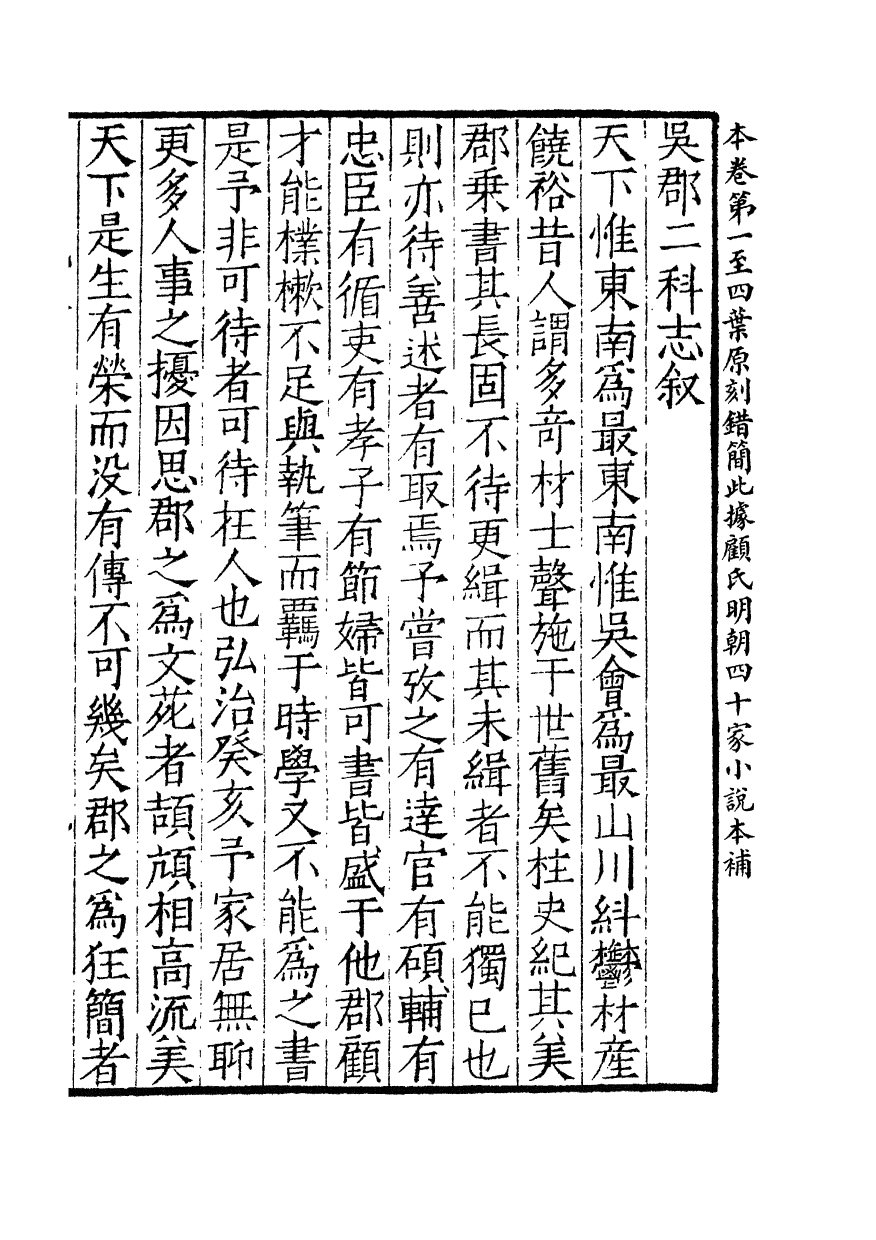 本卷第一至四葉原刻錯簡此據顧氏明朝四十家小說本補
吳郡二科志叙
天下惟東南爲最東南惟吳會爲最山川紏鬱材産
饒裕昔人謂多竒材士聲施于世舊矣柱史紀其美
郡乗書其長固不待更緝而其未緝者不能獨已也
則亦待善述者有取焉予嘗攷之有達官有碩輔有
忠臣有循吏有孝子有節婦皆可書皆盛于他郡顧
才能樸樕不足與執筆而覊于時學又不能爲之書
是予非可待者可待在人也弘治癸亥予家居無聊
更多人事之擾因思郡之爲文苑者頡頏相高流美
天下是生有榮而没有傳不可幾矣郡之爲狂簡者